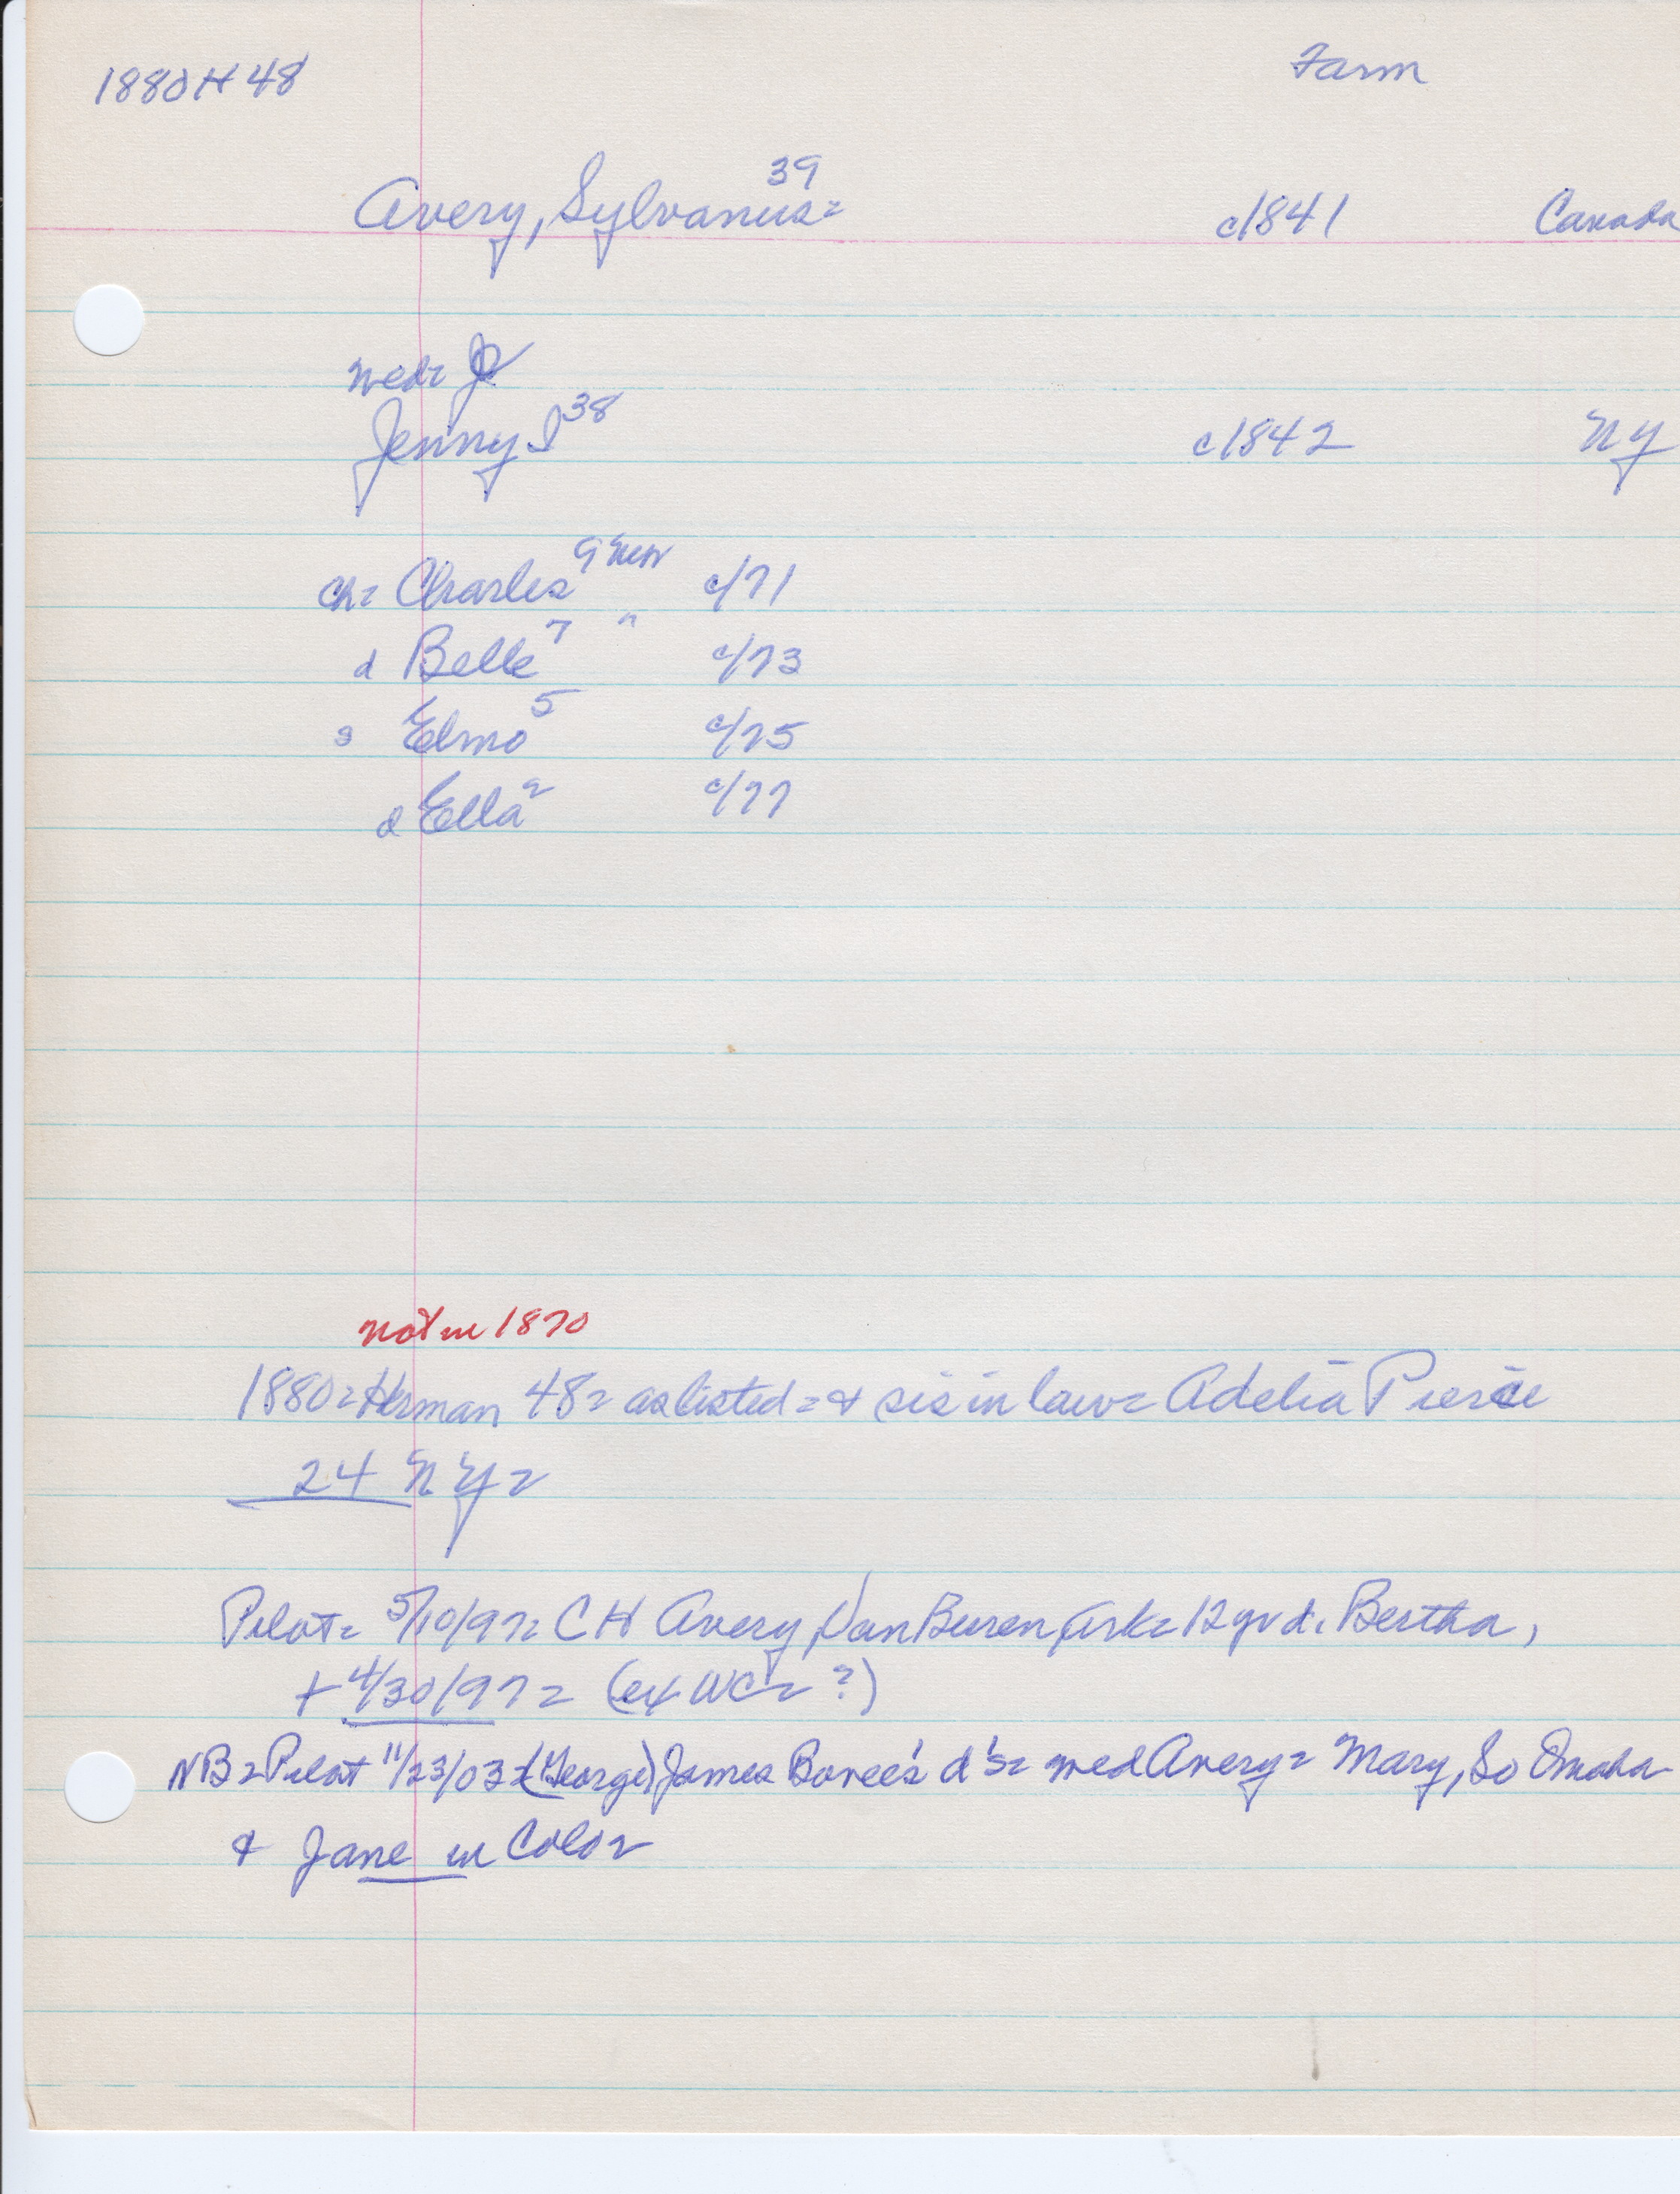 1880 H 48 Farm
Avery, Sylvanus= 39 c1841 Canada
wed=
Jenny I 38 c1842 NY
ch= Charles 9 c/71
d Belle 7 " c/73
s Elmo 5 c/75
d Ella 2 c/77
not in 1870
1880=Herman 48= as listed= & sis in law= Adelia Pierce
24 NY=
Pilot= 5/10/97= C H Avery, Van Buren, Ark= 12 yr d. Bertha,
+ 4/30/97= (ex WC= ?)
NB=Pilot 11/23/03= (George) James Bovee's d's= wed Avery= Mary, So Omaha
& Jane in Colo=